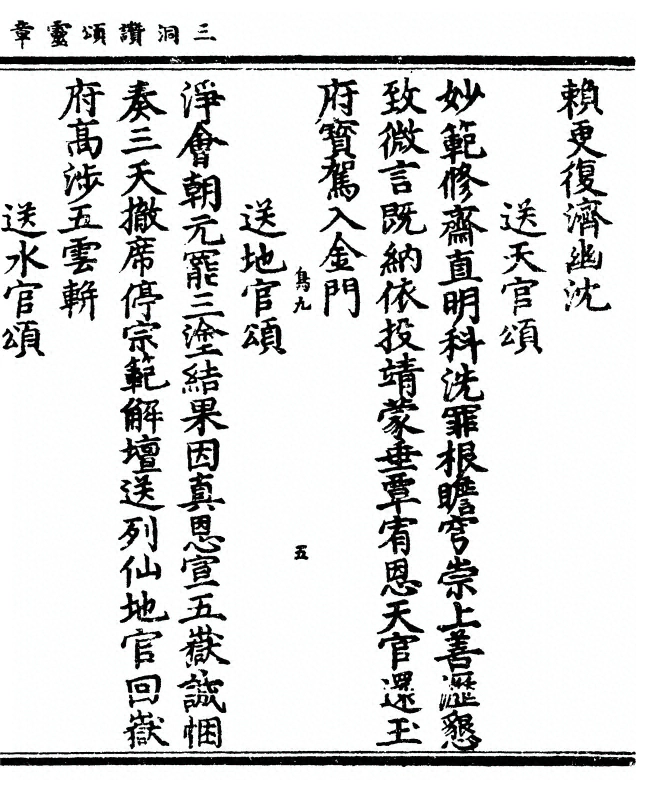 三洞讚頌靈章
賴更復濟幽沈
送天官頌
妙範修齋直明科洗罪根瞻穹崇上善瀝懇
致微言既納依投靖蒙垂覃宥恩天官還玉
府寶駕入金門
送地官頌
鳥九
五
淨會朝元罷三塗結果因真恩宣五嶽誠悃
奏三天撤席停宗範解壇送列仙地官回嶽
府高涉五雲軿
送水官頌